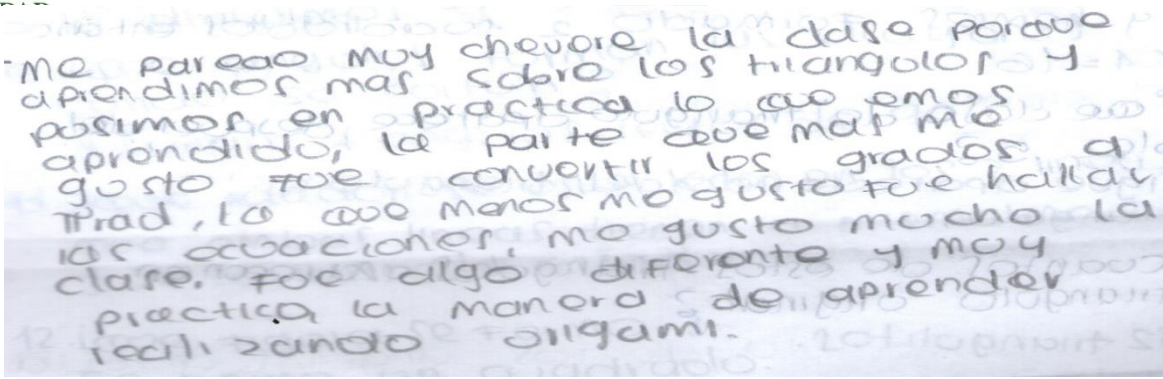 -me pareao muy chevere la clase porque
aprendimos mas sobre los triangulos y
posimos en practica lo que emos
aprendido, la parte que mas me
gusto fue convertir los grados a
πrad, lo que menos me gusto fue hallar
las ecuaciones, me gusto mucho la
clase. Fue algo diferente y muy
practica, la manera de aprender
realizando origami.